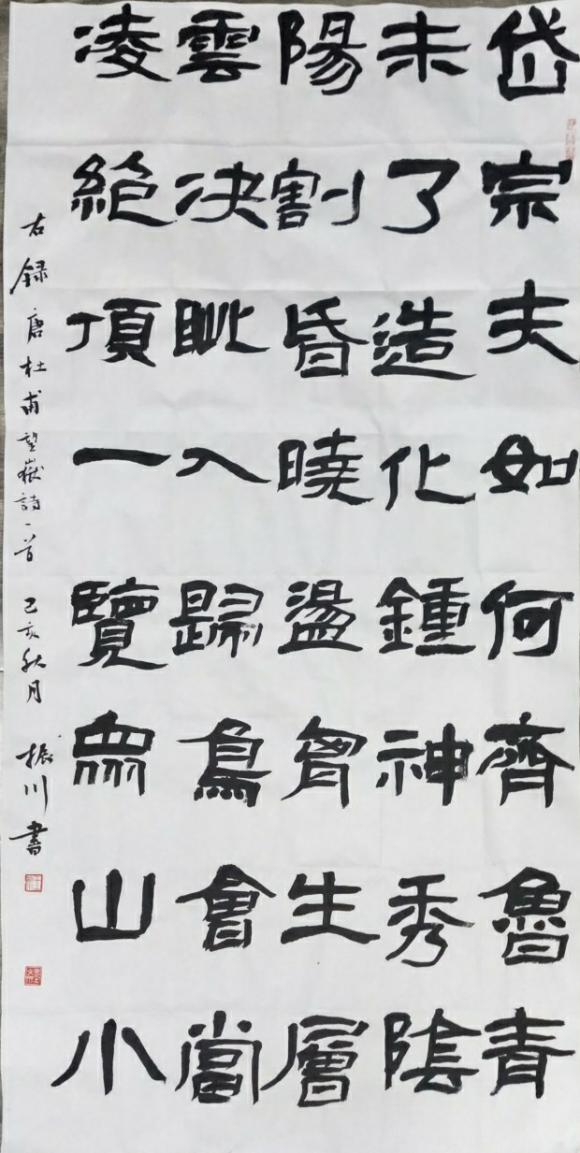 岱宗夫如何齊魯青
未了造化鍾神秀陰
陽割昏曉盪胷生層
雲决眦入歸鳥會當
凌絕頂一覽眾山小
右録唐杜甫望嶽詩一首 己亥秋月 振川書